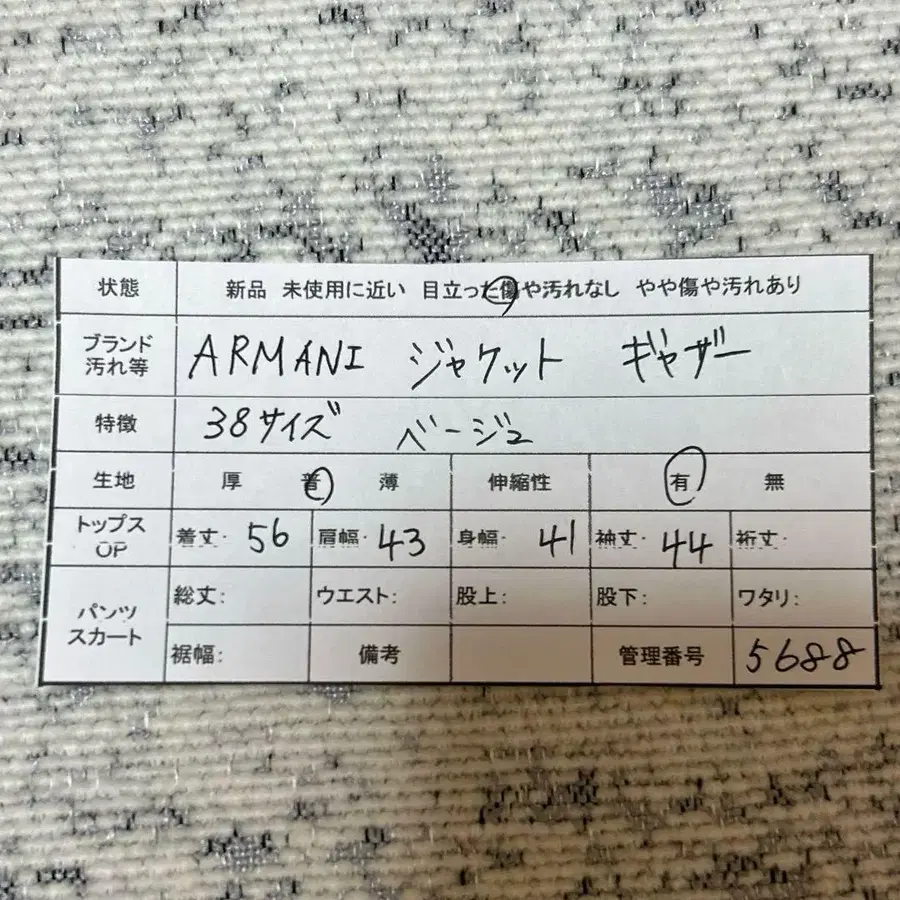 状態 新品 未使用に近い 目立った傷や汚れなし やや傷や汚れあり
ブランド
汚れ等 ARMANI ジャケット ギャザー
特徴 38サイズ ベージュ
生地 厚 普 薄 伸縮性 有 無
トップス
OP 着丈: 56 肩幅: 43 身幅: 41 袖丈: 44 裄丈:
パンツ
スカート 総丈: ウエスト: 股上: 股下: ワタリ:
裾幅: 備考 管理番号 5688